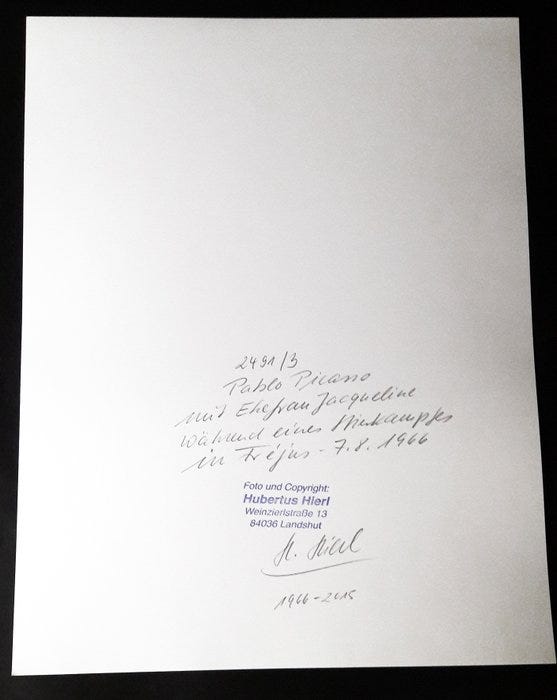 2491/3
Pablo Picasso
mit Ehefrau Jacqueline
während eines Stierkampfes
in Fréjus - 7.8.1966
Foto und Copyright:
Hubertus Hierl
Weinzierlstraße 13
84036 Landshut
H. Hierl
1966-2015